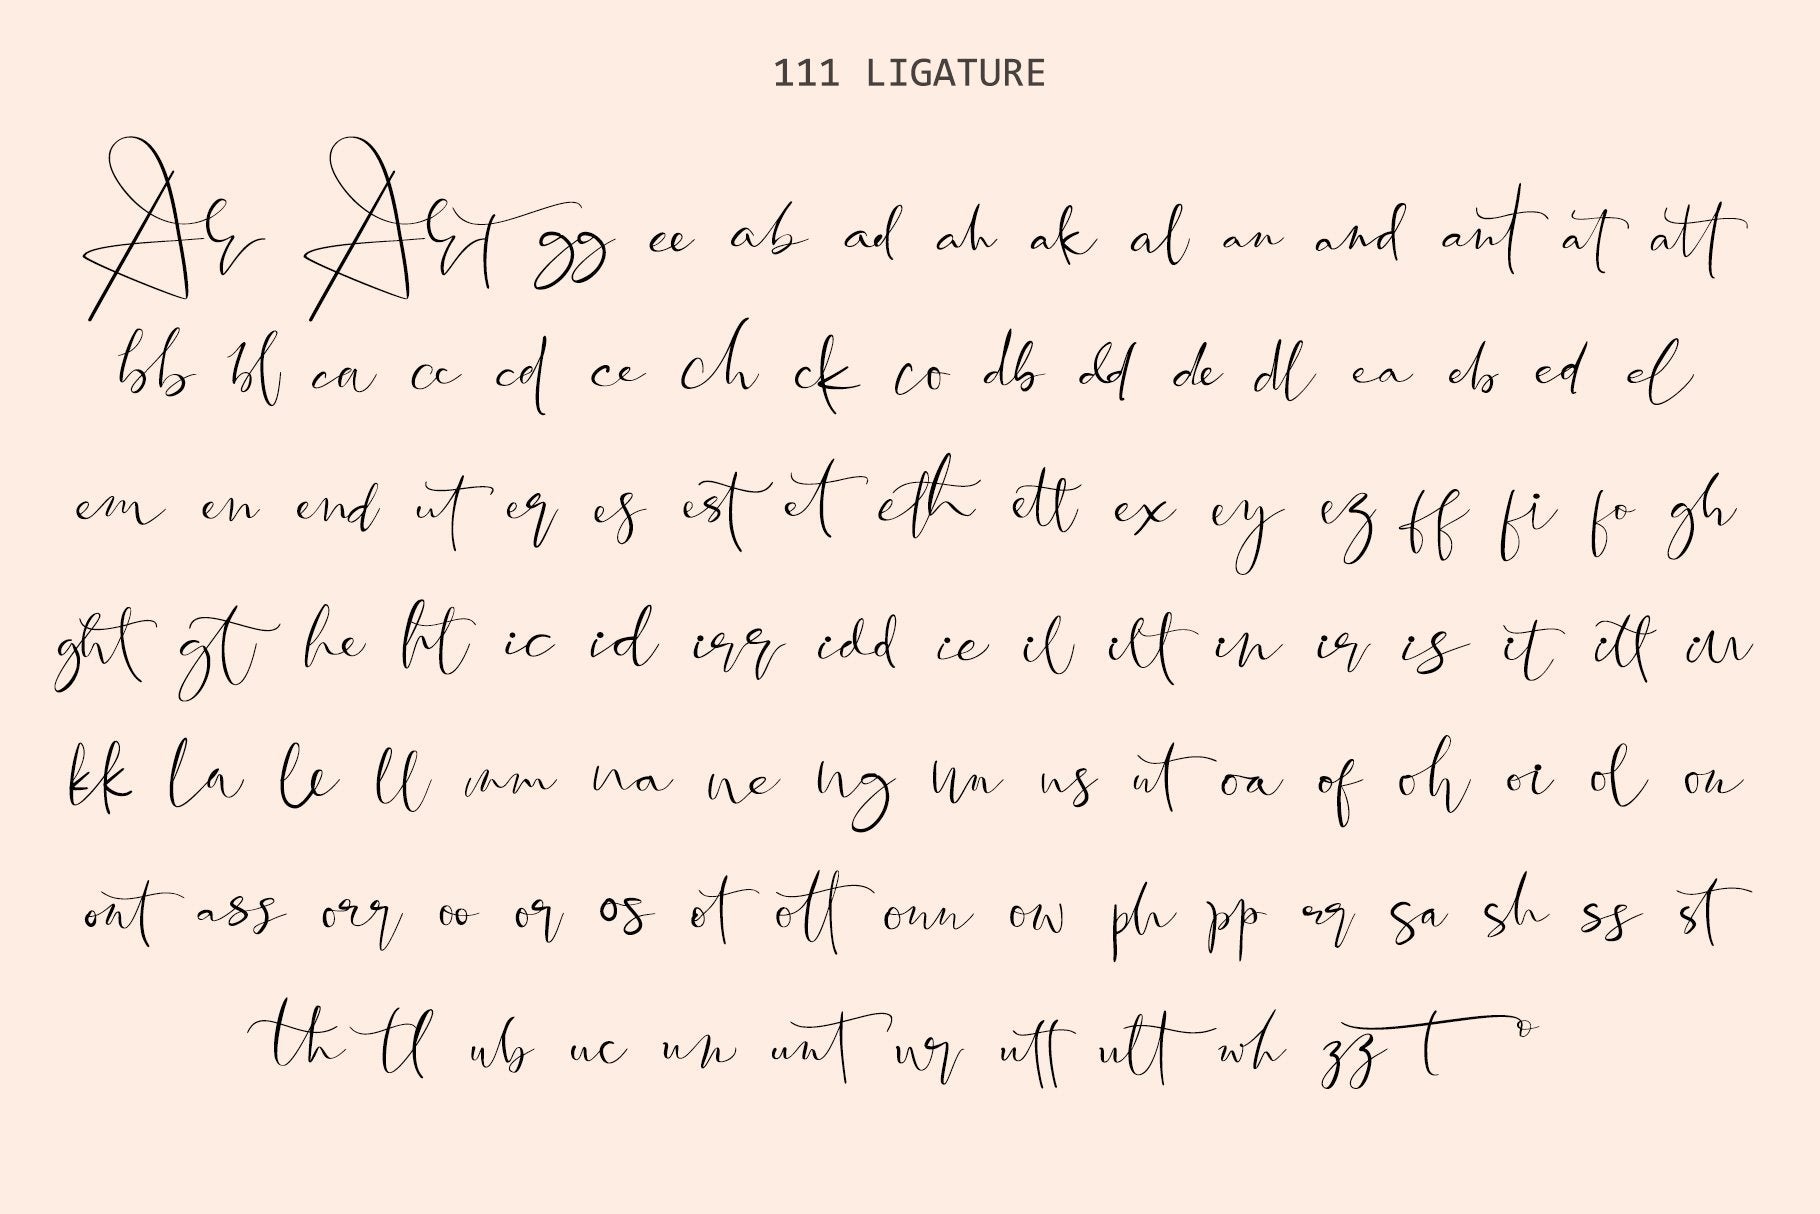 111 LIGATURE
Ar Art gg ee ab ad ah ak al an and ant at att
bb bl ca cc cd ce ch ck co db dd de dl ea eb ed el
em en end ut er es est et eth ett ex ey ez ff fi fo gh
ght gt he ht ic id irr idd ie il ilt in ir is it itt
kk la le ll mm na ne ng nn ns nt oa of oh oi ol on
ont ass orr oo or os ot ott oun ow ph pp rr sa sh ss st
th tl ub uc un unt ur utt ult wh zz t